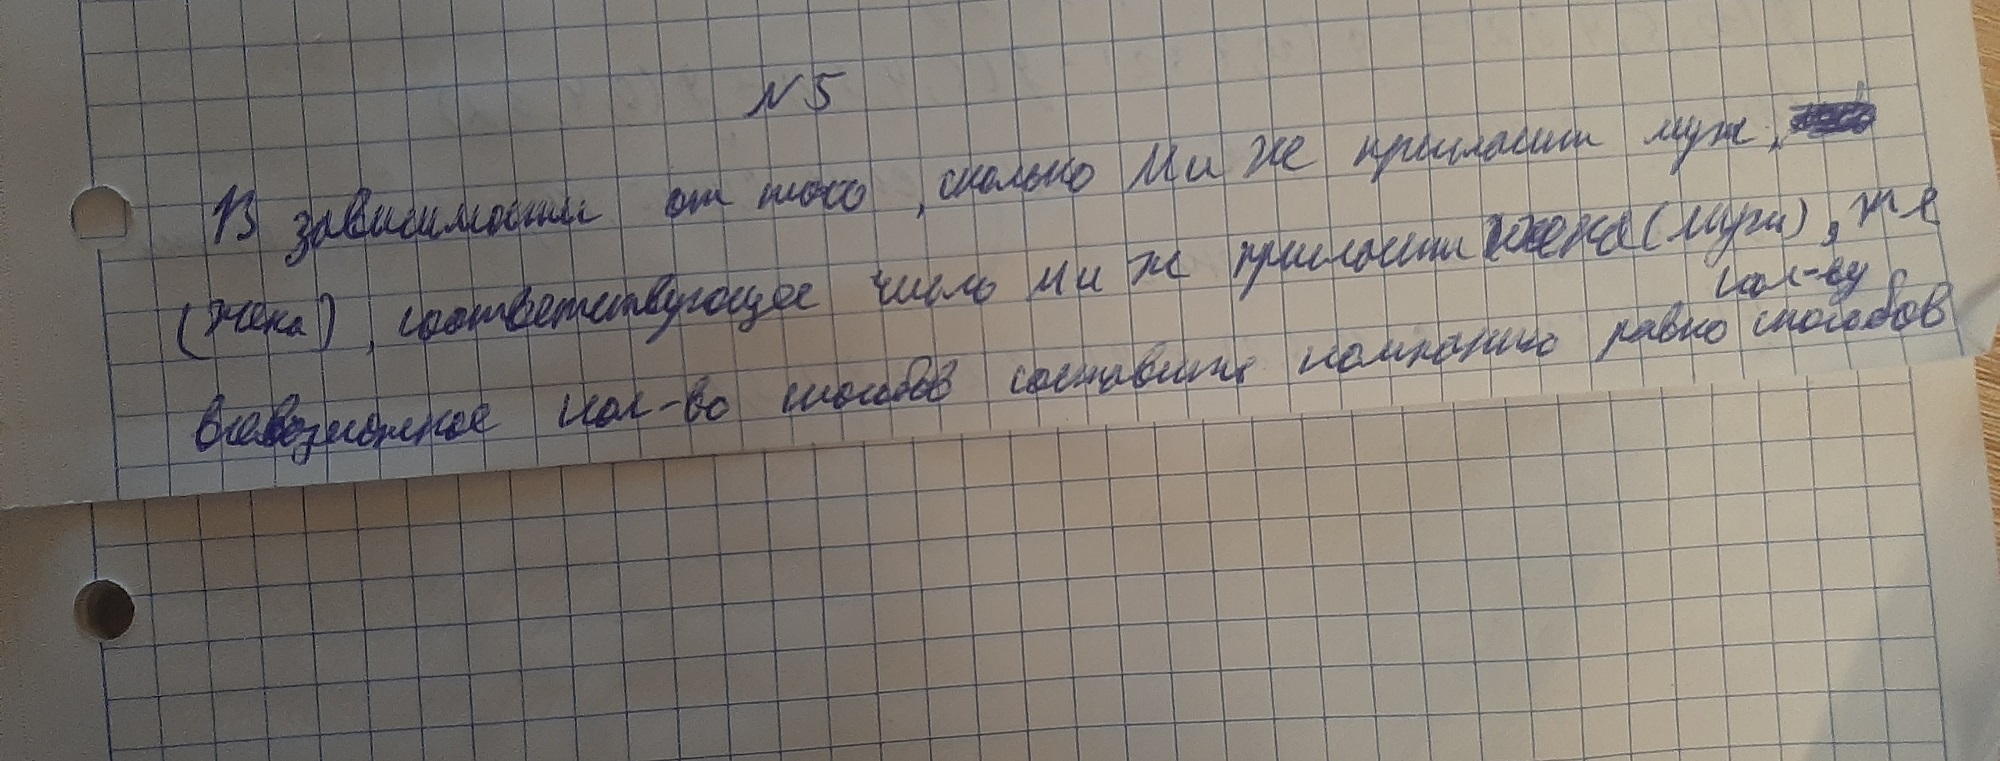 N 5
В зависимости от того, сколько М и Же пригласит муж,
(жена), соответствующее число М и Ж пригласит жена (муж), же
всевозможное кол-во способов составить компанию равно кол-ву способов